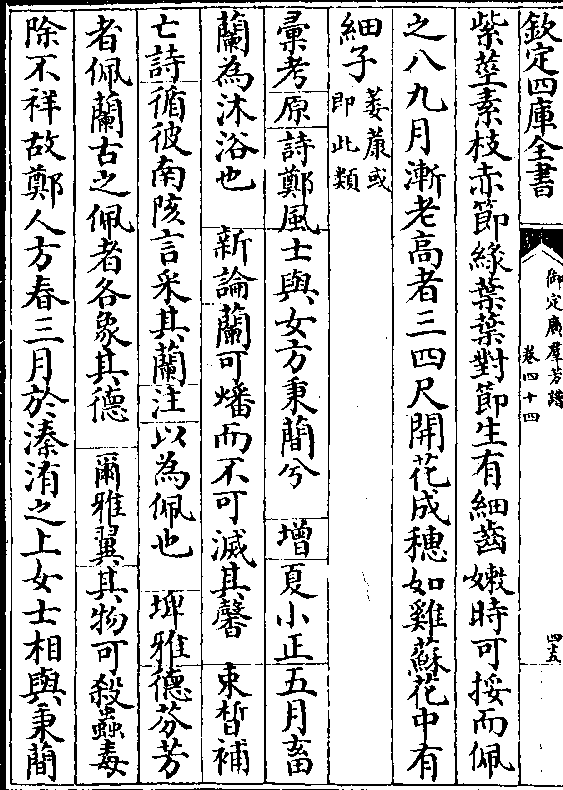 欽定四庫全書
御定廣羣芳譜
卷四十四
四五
紫莖素枝赤節緑葉葉對節生有細齒嫩時可挼而佩
之八九月漸老高者三四尺開花成穗如雞蘇花中有
細子萎蒹或
即此類
彚考原詩鄭風士與女方秉蕳兮 增夏小正五月畜
蘭為沐浴也 新論蘭可燔而不可滅其馨 束晳補
亡詩循彼南陔言采其蘭注以為佩也 埤雅德芬芳
者佩蘭古之佩者各象其德 爾雅翼其物可殺蟲毒
除不祥故鄭人方春三月於溱洧之上女士相與秉蕳